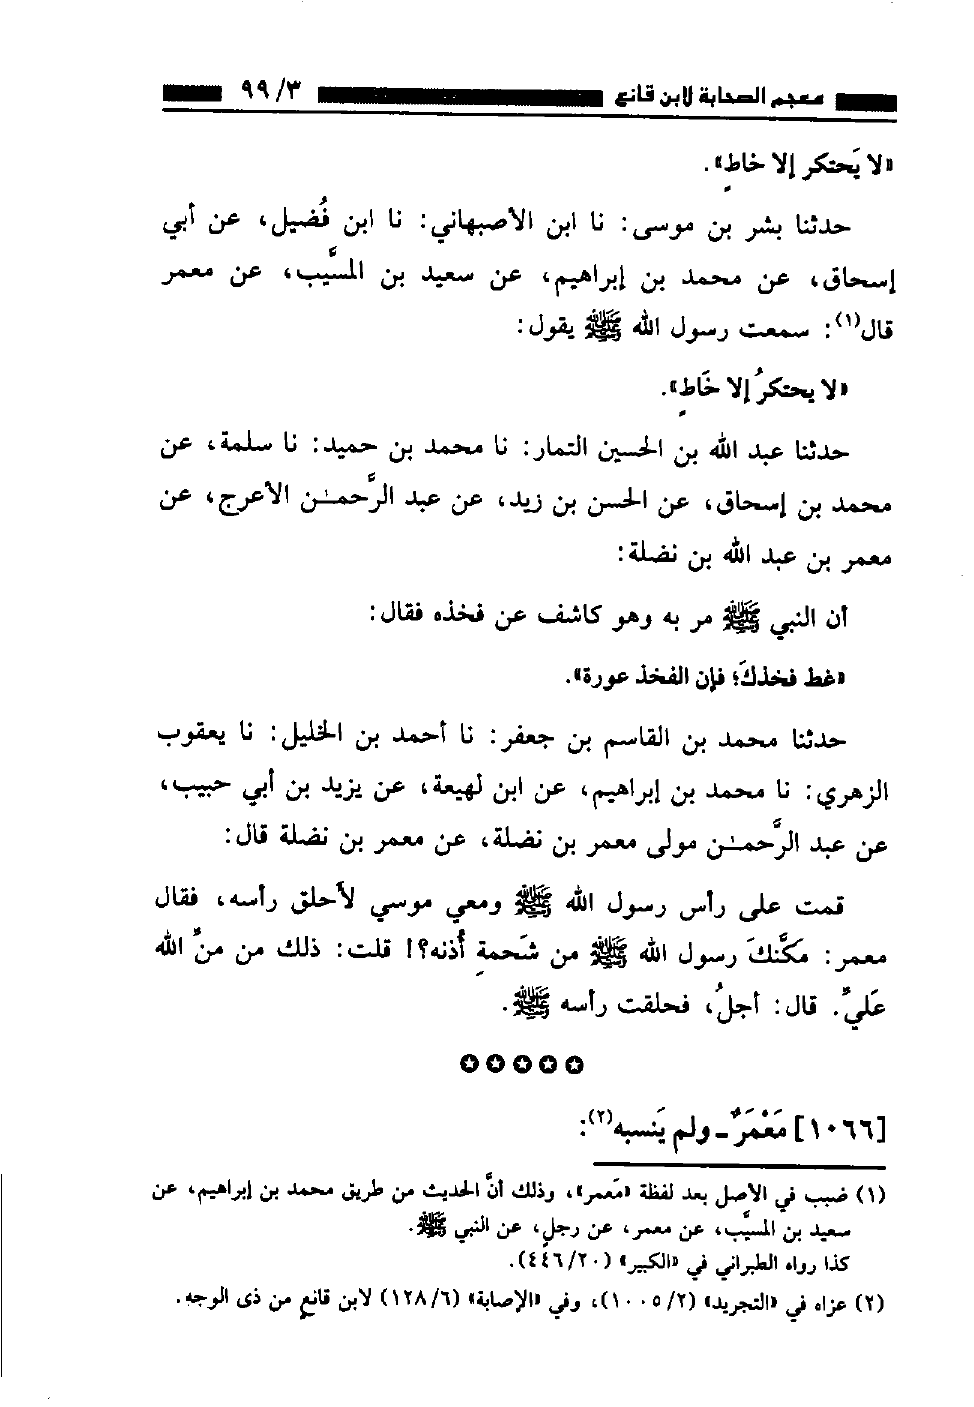 معجم الصحابة لابن قانع ٩٩/٣
«لا يَحتكر إلا خاطٍ».
حدثنا بشر بن موسى: نا ابن الأصبهاني: نا ابن فُضيل، عن أبي
إسحاق، عن محمد بن إبراهيم، عن سعيد بن المسيَّب، عن معمر
قال(١): سمعت رسول الله ﷺ يقول:
«لا يحتكرُ إلا خَاطٍ».
حدثنا عبد الله بن الحسين التمار: نا محمد بن حميد: نا سلمة، عن
محمد بن إسحاق، عن الحسن بن زيد، عن عبد الرَّحمـٰن الأعرج، عن
معمر بن عبد الله بن نضلة:
أن النبي ﷺ مر به وهو كاشف عن فخذه فقال:
«غط فخذكَ؛ فإن الفخذ عورة».
حدثنا محمد بن القاسم بن جعفر: نا أحمد بن الخليل: نا يعقوب
الزهري: نا محمد بن إبراهيم، عن ابن لهيعة، عن يزيد بن أبي حبيب،
عن عبد الرَّحمـٰن مولى معمر بن نضلة، عن معمر بن نضلة قال:
قمت على رأس رسول الله ﷺ ومعي موسي لأحلق رأسه، فقال
معمر: مكَّنكَ رسول الله ﷺ من شَحمةِ أُذنه؟! قلت: ذلك من منِّ الله
عَليَّ. قال: أجلُ، فحلقت رأسه ﷺ.
✪✪✪✪✪
[١٠٦٦] مَعْمَرٌ ـ ولم يَنسبه(٢):
(١) ضبب في الأصل بعد لفظة «مَعمر»، وذلك أنَّ الحديث من طريق محمد بن إبراهيم، عن
سعيد بن المسيَّب، عن معمر، عن رجلٍ، عن النبي ﷺ.
كذا رواه الطبراني في «الكبير» (٤٤٦/٢٠).
(٢) عزاه في «التجريد» (١٠٠٥/٢)، وفي «الإصابة» (١٢٨/٦) لابن قانع من ذى الوجه.